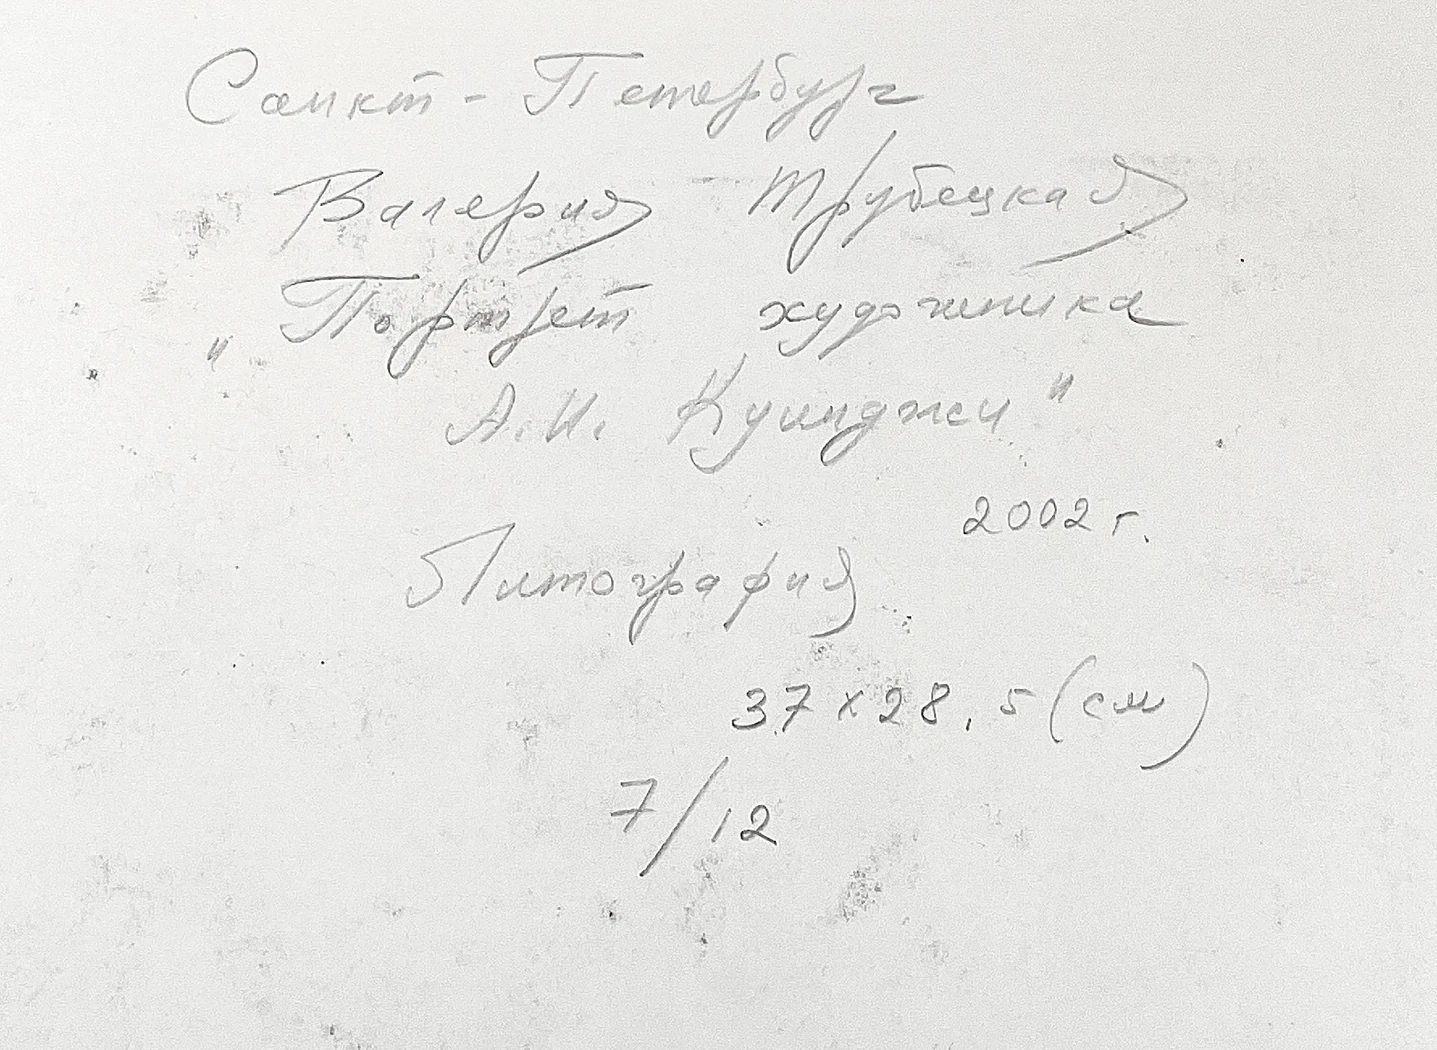 Санкт-Петербург
Валерия Трубецкая
"Портрет художника
А.И. Куинджи"
2002 г.
Литография
37 x 28,5 (см)
7/12